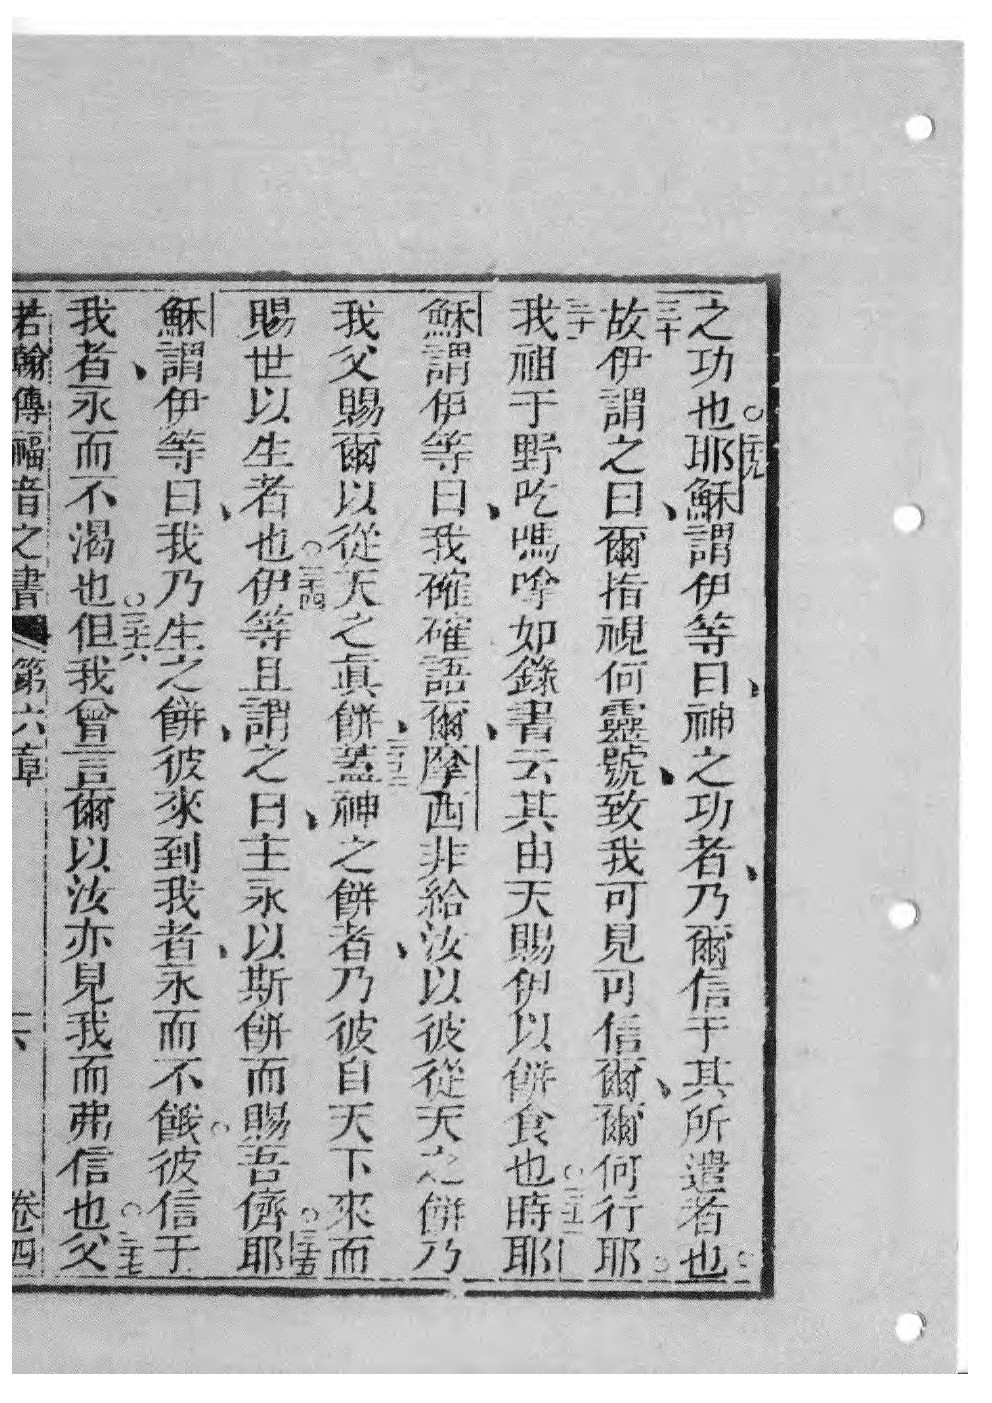 之功也○二十九耶穌謂伊等曰、神之功者、乃爾信于其所遣者也○
三十故伊謂之曰、爾指視何靈號、致我可見可信爾、爾何行耶○
三十一我祖于野吃嗎㖮如錄書云、其由天賜伊以餅食也○三十二時耶
穌謂伊等曰、我確確語爾、摩西非給汝以彼從天之餅乃
我父賜爾以從天之眞餅、三十三蓋神之餅者、乃彼自天下來而
賜世以生者也○三十四伊等且謂之曰、主永以斯餅而賜吾儕○三十五耶
穌謂伊等曰、我乃生之餅、彼來到我者、永而不餓○彼信于
我者、永而不渴也○三十六但我曾言爾以汝亦見我而弗信也○三十七父
若翰傳福音之書 第六章 六 卷四